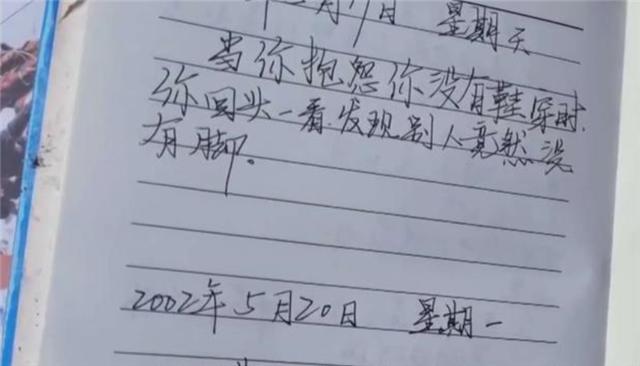 月19日 星期天
当你抱怨你没有鞋穿时,
你回头一看发现别人竟然没
有脚.
2002年5月20日 星期一